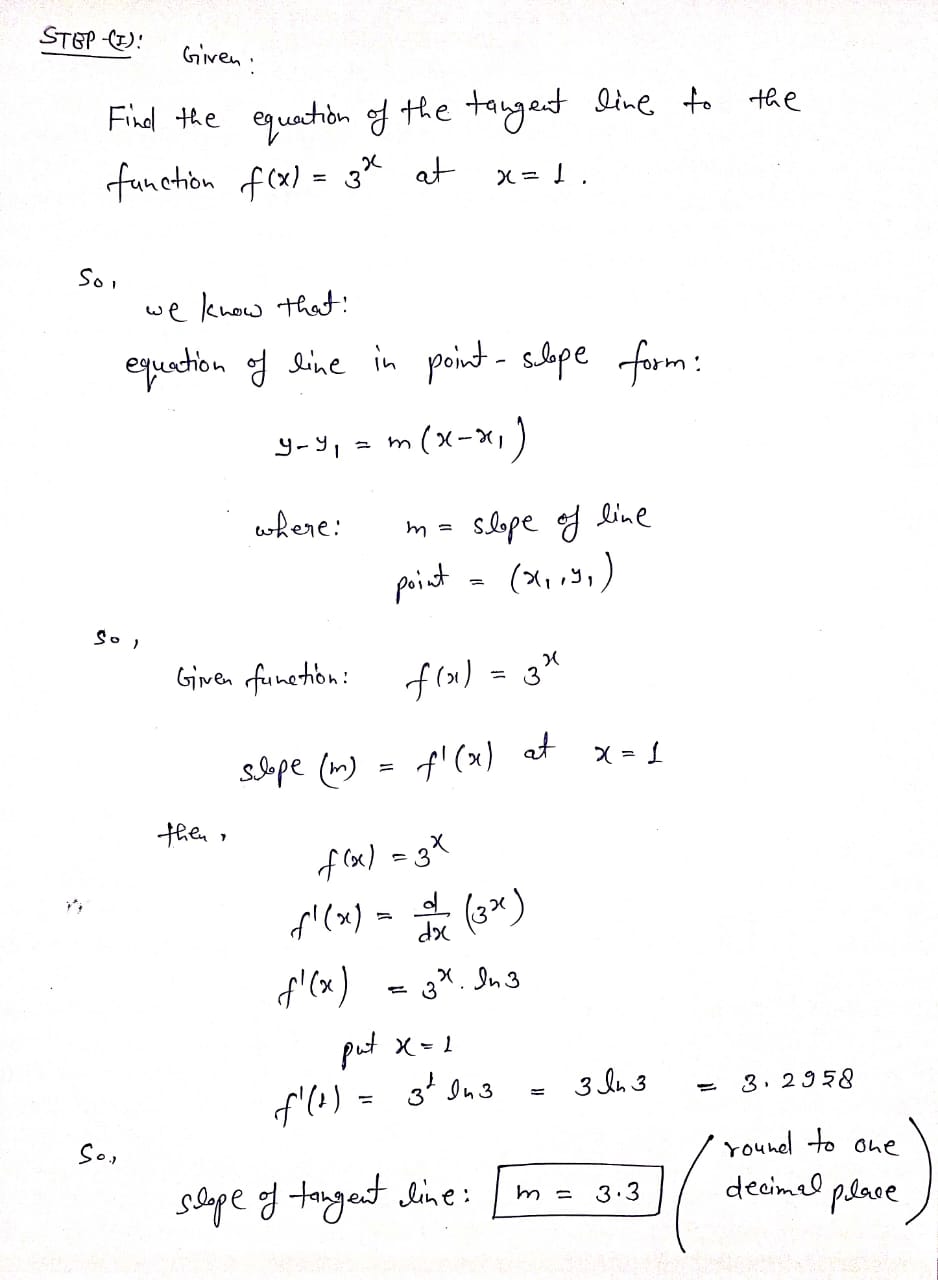 STEP-(I):
Given:
Find the equation of the tangent line to the
function f(x) = 3^x at x = 1.
So,
we know that:
equation of line in point-slope form:
y-y₁ = m(x-x₁)
where: m = slope of line
point = (x₁,y₁)
So,
Given function: f(x) = 3^x
slope (m) = f'(x) at x = 1
then,
f(x) = 3^x
f'(x) = d/dx (3^x)
f'(x) = 3^x. ln3
put x = 1
f'(1) = 3^1 ln3 = 3 ln 3 = 3.2958
So,
slope of tangent line: m = 3.3 (round to one
decimal place)